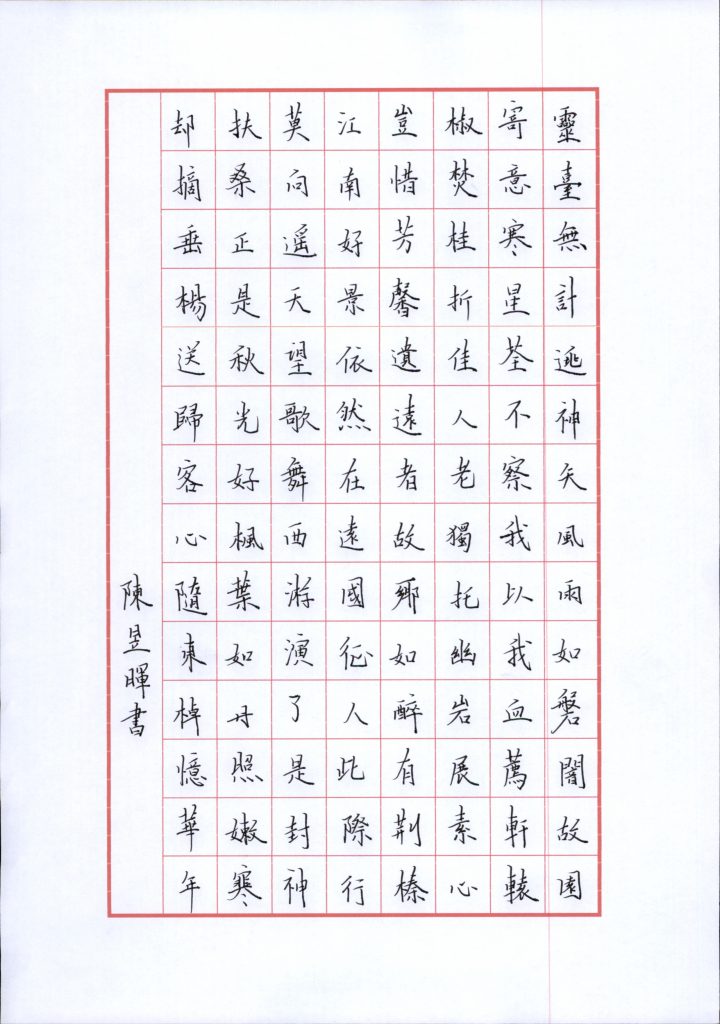 靈臺無計逃神矢風雨如磐闇故園
寄意寒星荃不察我以我血薦軒轅
椒焚桂折佳人老獨托幽岩展素心
豈惜芳馨遺遠者故鄉如醉有荆榛
江南好景依然在遠國征人此際行
莫向遥天望歌舞西游演了是封神
扶桑正是秋光好楓葉如丹照嫩寒
却摘垂楊送歸客心隨東棹憶華年
陳昱暉書